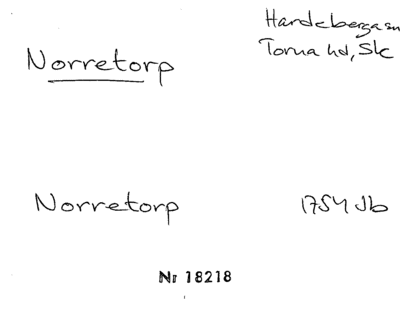 Norretorp
Hardeberga sn
Torna hd, Sk
Norretorp
1754 Jb
Nr 18218